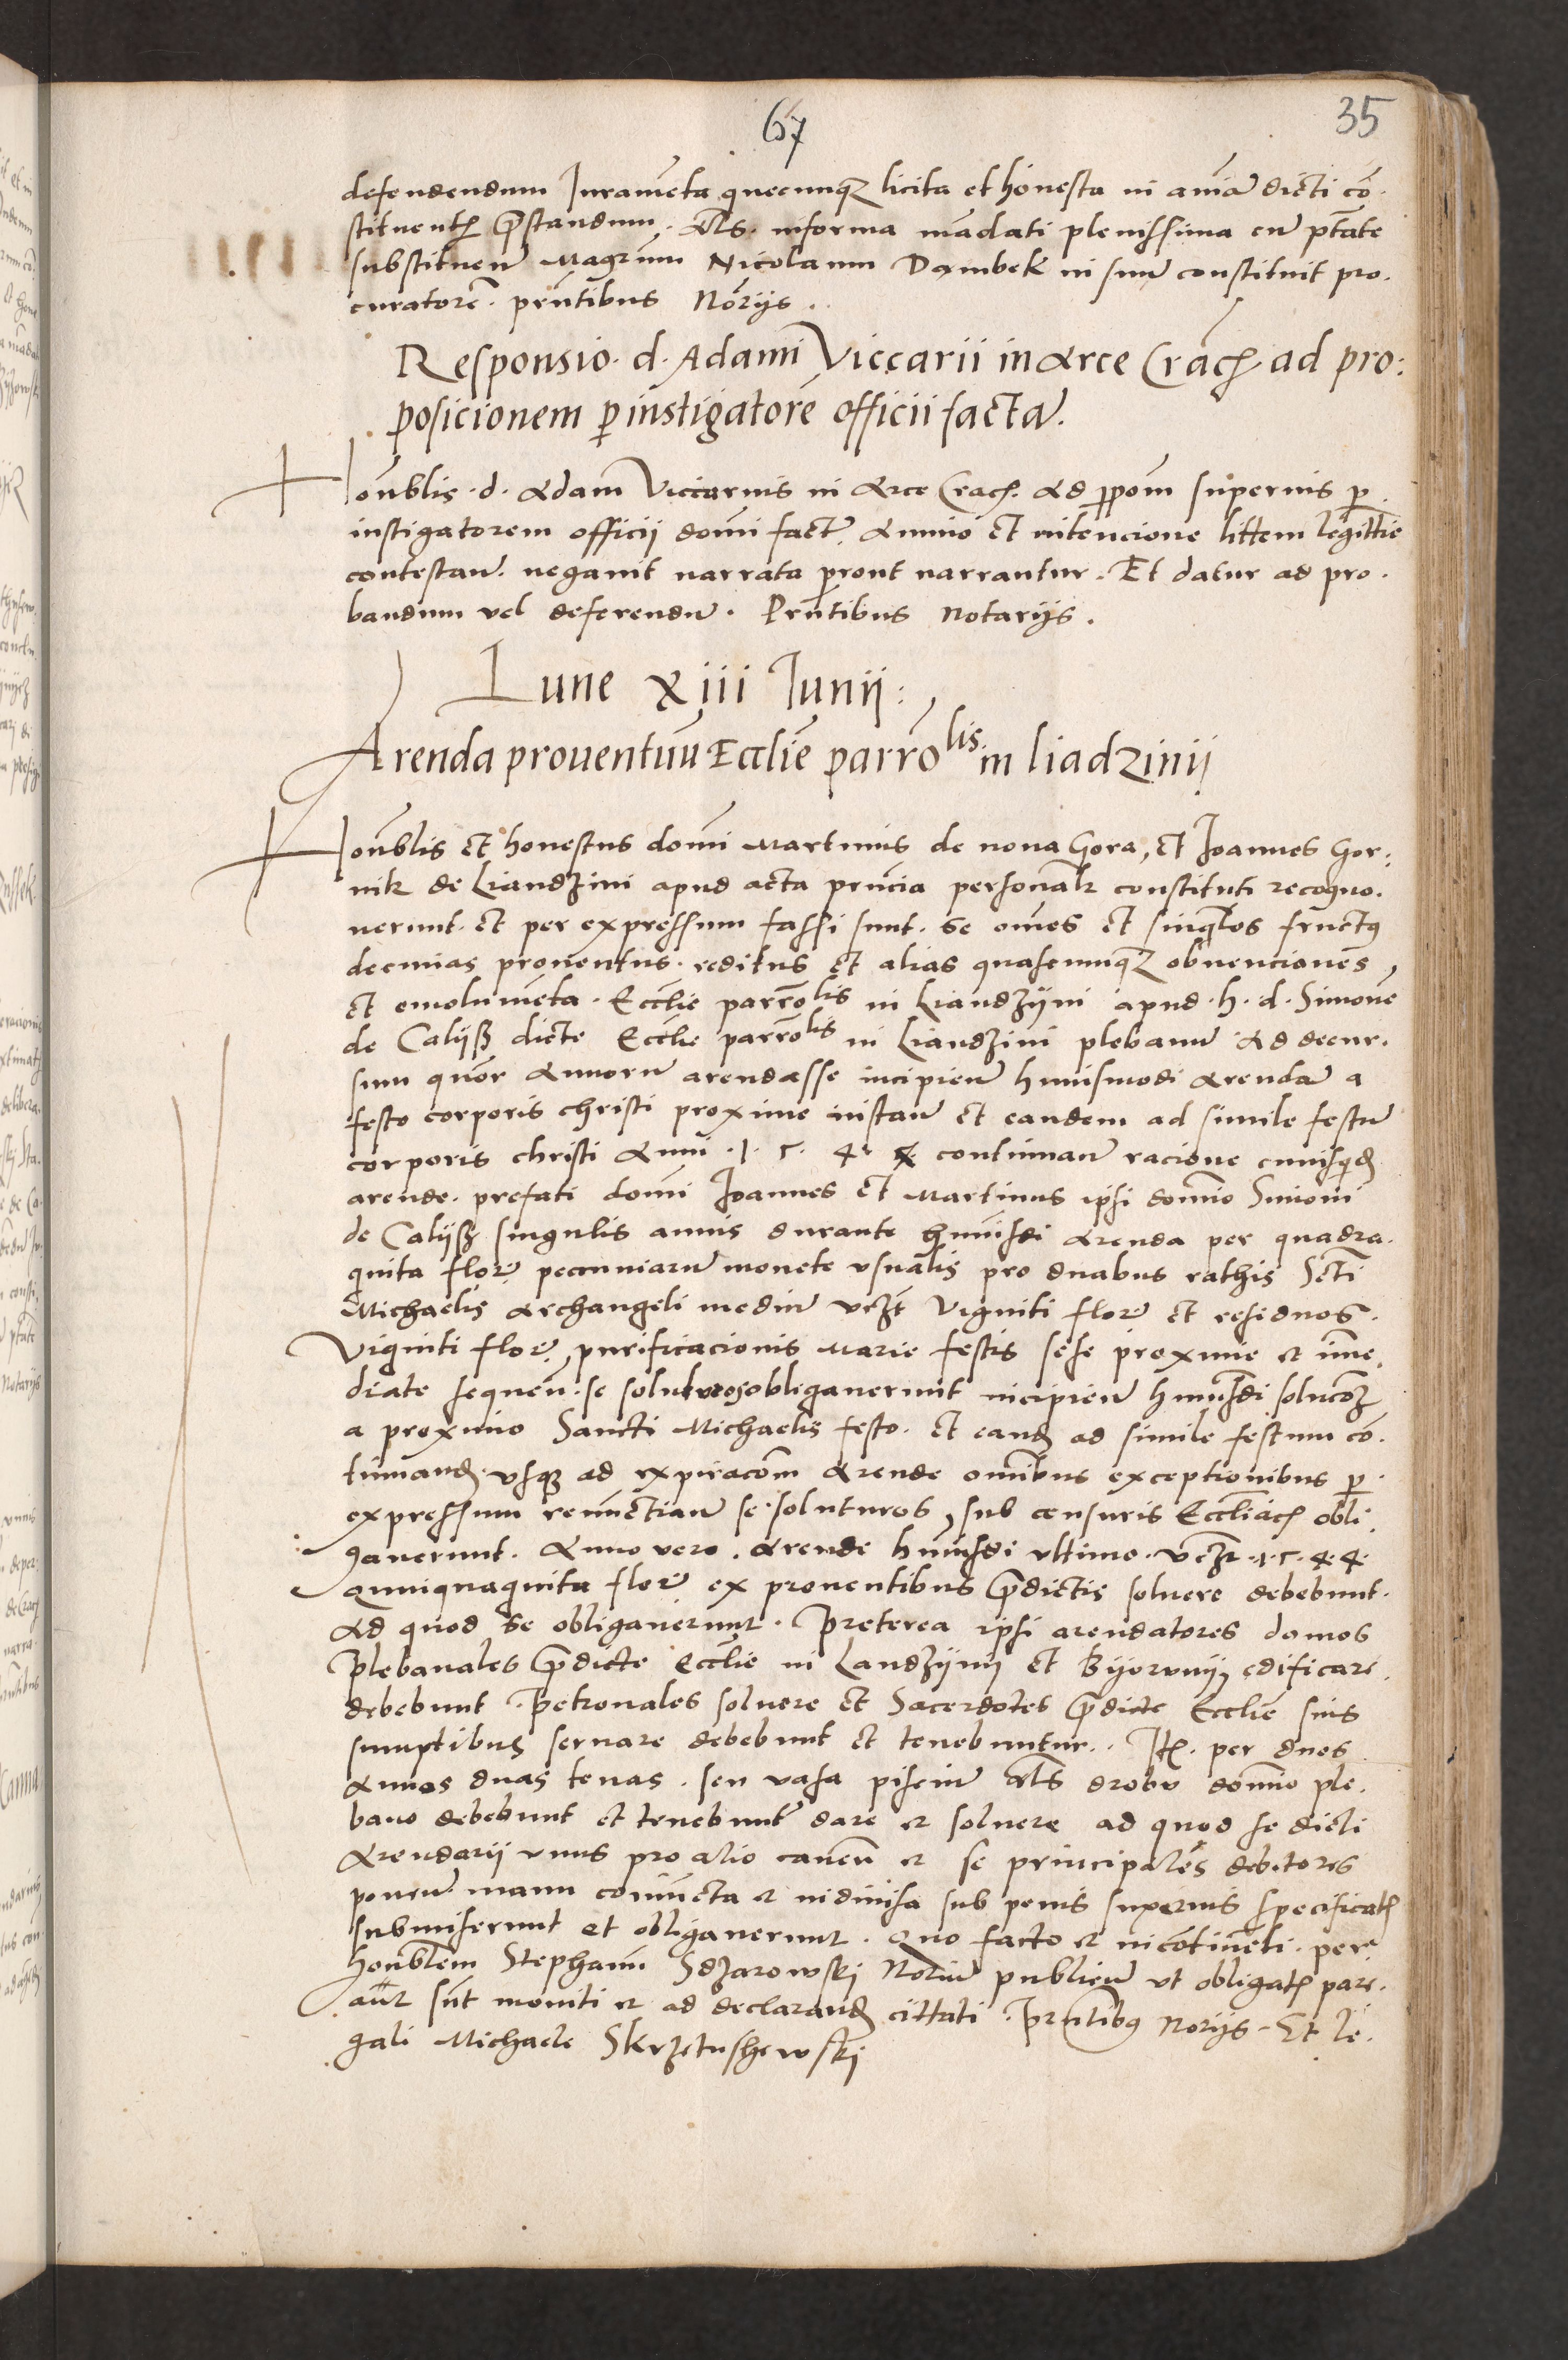 67
35
defendendum Iuramēta quecunqȝ licita et honesta in aniā dicti cō.
stituentꝭ p̄standum. Als. in forma mādati plenissima cū ptate
substituen̄ Magr̄um Nicolaum Dambek in suū constituit pro.
curatorē. pn̄tibus Nōrijs.
Responsio. d. Adami Viccarii in Arce Cracꝭ. ad pro:
posicionem ꝑ instigatorē officii factā.
Honn̄blis. d. Adam Viccarius in Arce Cracꝭ. Ad ꝓpom̄ superius ꝑ
instigatorem officij domi factꝭ. Animo et intencione littem legittīe
contestan̄. negauit narrata prout narrantur. Et datur ad pro.
bandum vel deferendū. Prn̄tibus Notarijs.
Lune xiii Iunij:
Arenda prouentuū Eccl̄ie parrō lis. in liadzinij
Honn̄blis et honestus domī Martinus de noua Gora, et Joannes Gor:
nik de Liandzini apud acta pn̄cia personalr̄ constituti recogno.
uerunt. et per expressum fassi sunt. se oēs et singlos fructꝯ
decimas prouentus. reditus et alias quascunqȝ obuenciones,
et emolumēta. Eccl̄ie parrōlis in Liandzyni apud. h. d. Simonē
de Calijß dicte Eccl̄ie parrōlis in Liandzini plebanū Ad decur.
sum quor̄ Annorū arendasse incipien̄ huiusmodi Arendā a
festo corporis christi proxime instan̄ et eandem ad simile festū
corporis christi Anni . 1 . 5 . 4 . 4. continuan̄ racione cuiusꝗdꝭ
arende. prefati domī Joannes et Martinus ipsi domīo Simoni
de Calijß singulis annis durante hm̄oisdi Arenda per quadra.
ginta florꝭ pecuniarū monete vsualis pro duabus rathis Scti
Michaelis Archangeli mediū vczt Viginti florꝭ et residuos.
Viginti florꝭ. purificacionis Marie festis sese proxime et ime.
diate sequen̄. se soluturos obligauerunt incipien̄ hmōisdi solucōȝ
a proximo Sancti Michaelis festo. et eandꝭ ad simile festum cō.
tinuandꝭ. vsqȝ ad expiracōm Arende omībus exceptionibus ꝑ.
expressum renūctian̄ se soluturos, sub censuris Eccl̄iacꝭ obli.
gauerunt. Anno vero. Arende hmōisdi vltimo. vczt . 1 . 5 . 4 . 4.
Quinquaginta florꝭ ex prouentibus p̄dictis soluere debebunt.
Ad quod se obligauerunt. Preterea ipsi arendatores domos
plebanales p̄dicte Eccl̄ie in Landzyny et Byerwnij edificare.
debebunt. Petronales soluere et Sacerdotes p̄dicte Eccl̄ie suis
sumptibus seruare debebunt et tenebuntur. Itꝭ. per duos
Annos duas tenas. seu vasa pisciū Als drobv domīo ple.
bano debebunt et tenebuntꝭ dare et soluere ad quod se dicti
Arendarii vnus pro alio cauen̄ et se principales debitores
ponen̄. manu coniūcta et indiuisa sub penis superius specificatꝭ
submiserunt et obligauerunt. Quo facto et in cōtinēti. per
honn̄blem Stephanū Sdzarowski Notiū publicū vt obligatꝭ pare.
ant̄ sūt moniti et ad declarandꝭ cittati. Prn̄tibꝯ Nōrijs. Et le.
gali Michaele Skrzetushewski